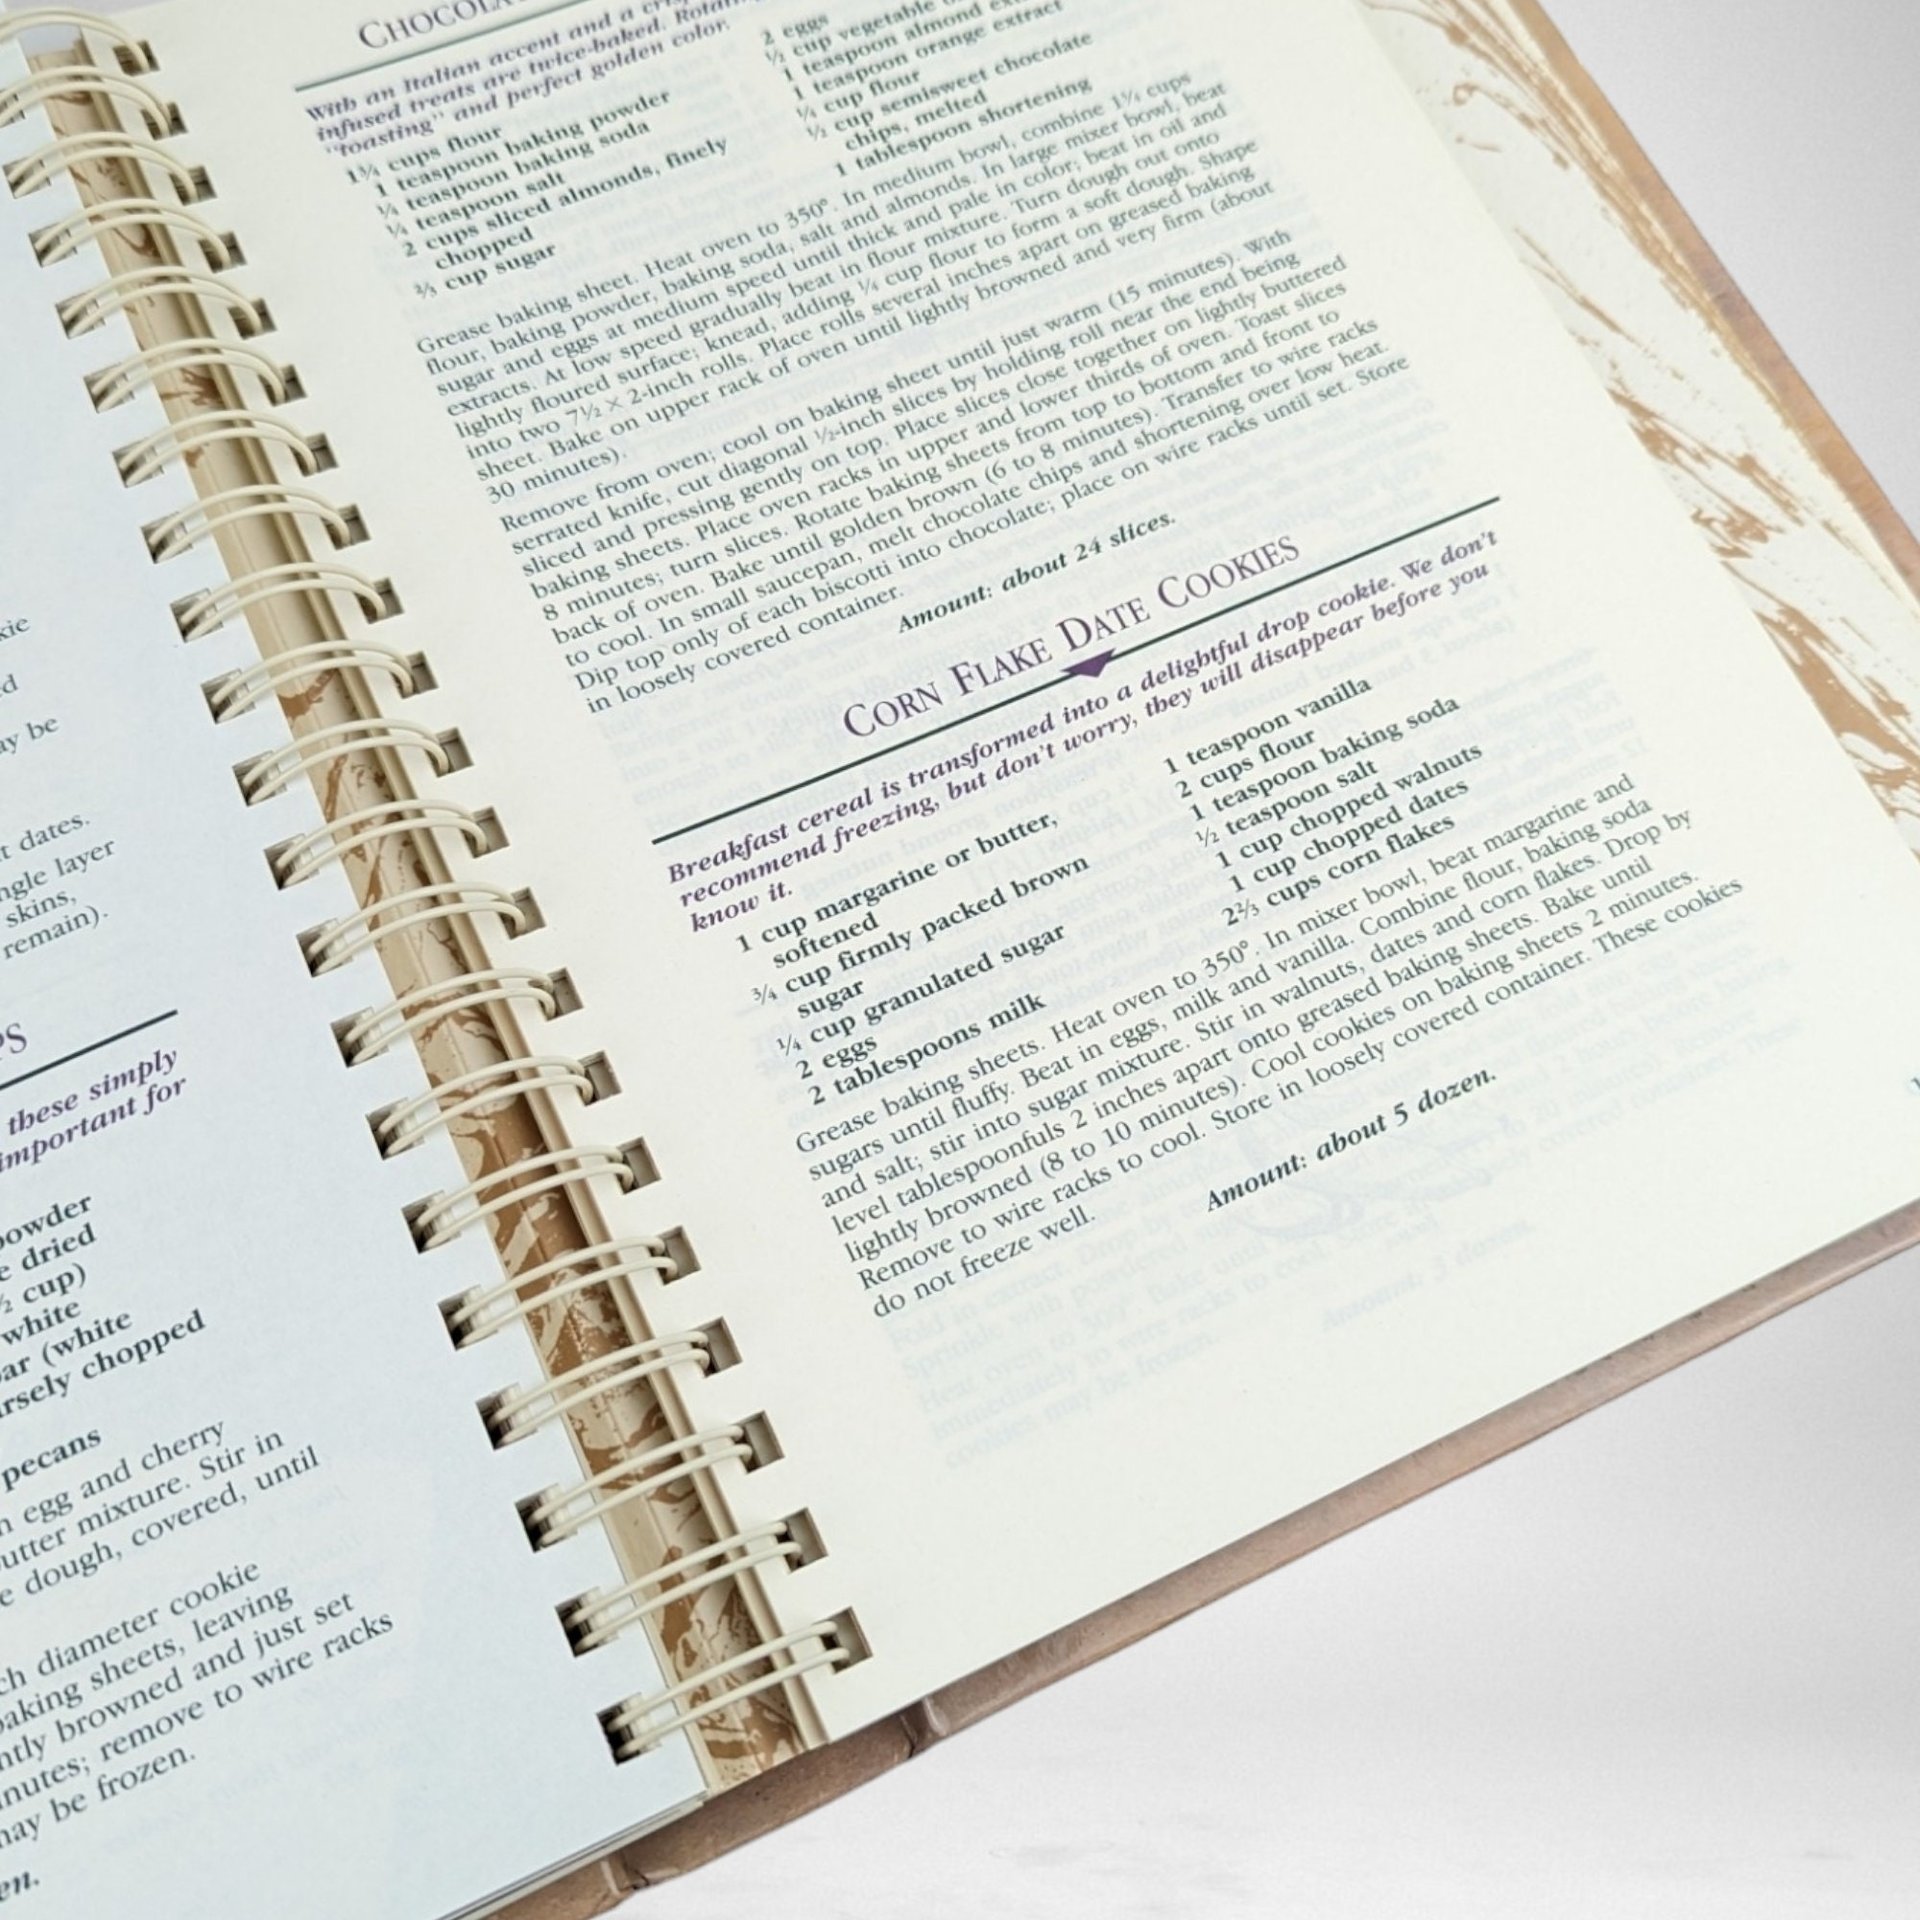 kie
d
ay be
t dates.
ngle layer
skins,
remain).
PS
these simply
important for
powder
e dried
½ cup)
white
ar (white
rsely chopped
pecans
n egg and cherry
utter mixture. Stir in
e dough, covered, until
ch diameter cookie
baking sheets, leaving
ntly browned and just set
nutes; remove to wire racks
may be frozen.
en.
CHOCOLA
With an Italian accent and a crisp
infused treats are twice-baked.
"toasting" and perfect golden color.
1¾ cups flour
1 teaspoon baking powder
¼ teaspoon baking soda
¼ teaspoon salt
2 cups sliced almonds, finely
chopped
⅔ cup sugar
2 eggs
cup vegetable
1 teaspoon almond
1 teaspoon orange extract
¼ cup flour
½ cup semisweet chocolate
chips, melted
1 tablespoon shortening
Grease baking sheet. Heat oven to 350°. In medium bowl, combine 1¾ cups
flour, baking powder, baking soda, salt and almonds. In large mixer bowl, beat
sugar and eggs at medium speed until thick and pale in color; beat in oil and
extracts. At low speed gradually beat in flour mixture. Turn dough out onto
lightly floured surface; knead, adding ¼ cup flour to form a soft dough. Shape
into two 7½ × 2-inch rolls. Place rolls several inches apart on greased baking
sheet. Bake on upper rack of oven until lightly browned and very firm (about
30 minutes).
Remove from oven; cool on baking sheet until just warm (15 minutes). With
serrated knife, cut diagonal ½-inch slices by holding roll near the end being
sliced and pressing gently on top. Place slices close together on lightly buttered
baking sheets. Place oven racks in upper and lower thirds of oven. Toast slices
8 minutes; turn slices. Rotate baking sheets from top to bottom and front to
back of oven. Bake until golden brown (6 to 8 minutes). Transfer to wire racks
to cool. In small saucepan, melt chocolate chips and shortening over low heat.
Dip top only of each biscotti into chocolate; place on wire racks until set. Store
in loosely covered container.
Amount: about 24 slices.
CORN FLAKE DATE COOKIES
Breakfast cereal is transformed into a delightful drop cookie. We don't
recommend freezing, but don't worry, they will disappear before you
know it.
1 cup margarine or butter,
softened
¾ cup firmly packed brown
sugar
¼ cup granulated sugar
2 eggs
2 tablespoons milk
1 teaspoon vanilla
2 cups flour
1 teaspoon baking soda
½ teaspoon salt
1 cup chopped walnuts
1 cup chopped dates
2⅔ cups corn flakes
Grease baking sheets. Heat oven to 350°. In mixer bowl, beat margarine and
sugars until fluffy. Beat in eggs, milk and vanilla. Combine flour, baking soda
and salt; stir into sugar mixture. Stir in walnuts, dates and corn flakes. Drop by
level tablespoonfuls 2 inches apart onto greased baking sheets. Bake until
lightly browned (8 to 10 minutes). Cool cookies on baking sheets 2 minutes.
Remove to wire racks to cool. Store in loosely covered container. These cookies
do not freeze well.
Amount: about 5 dozen.